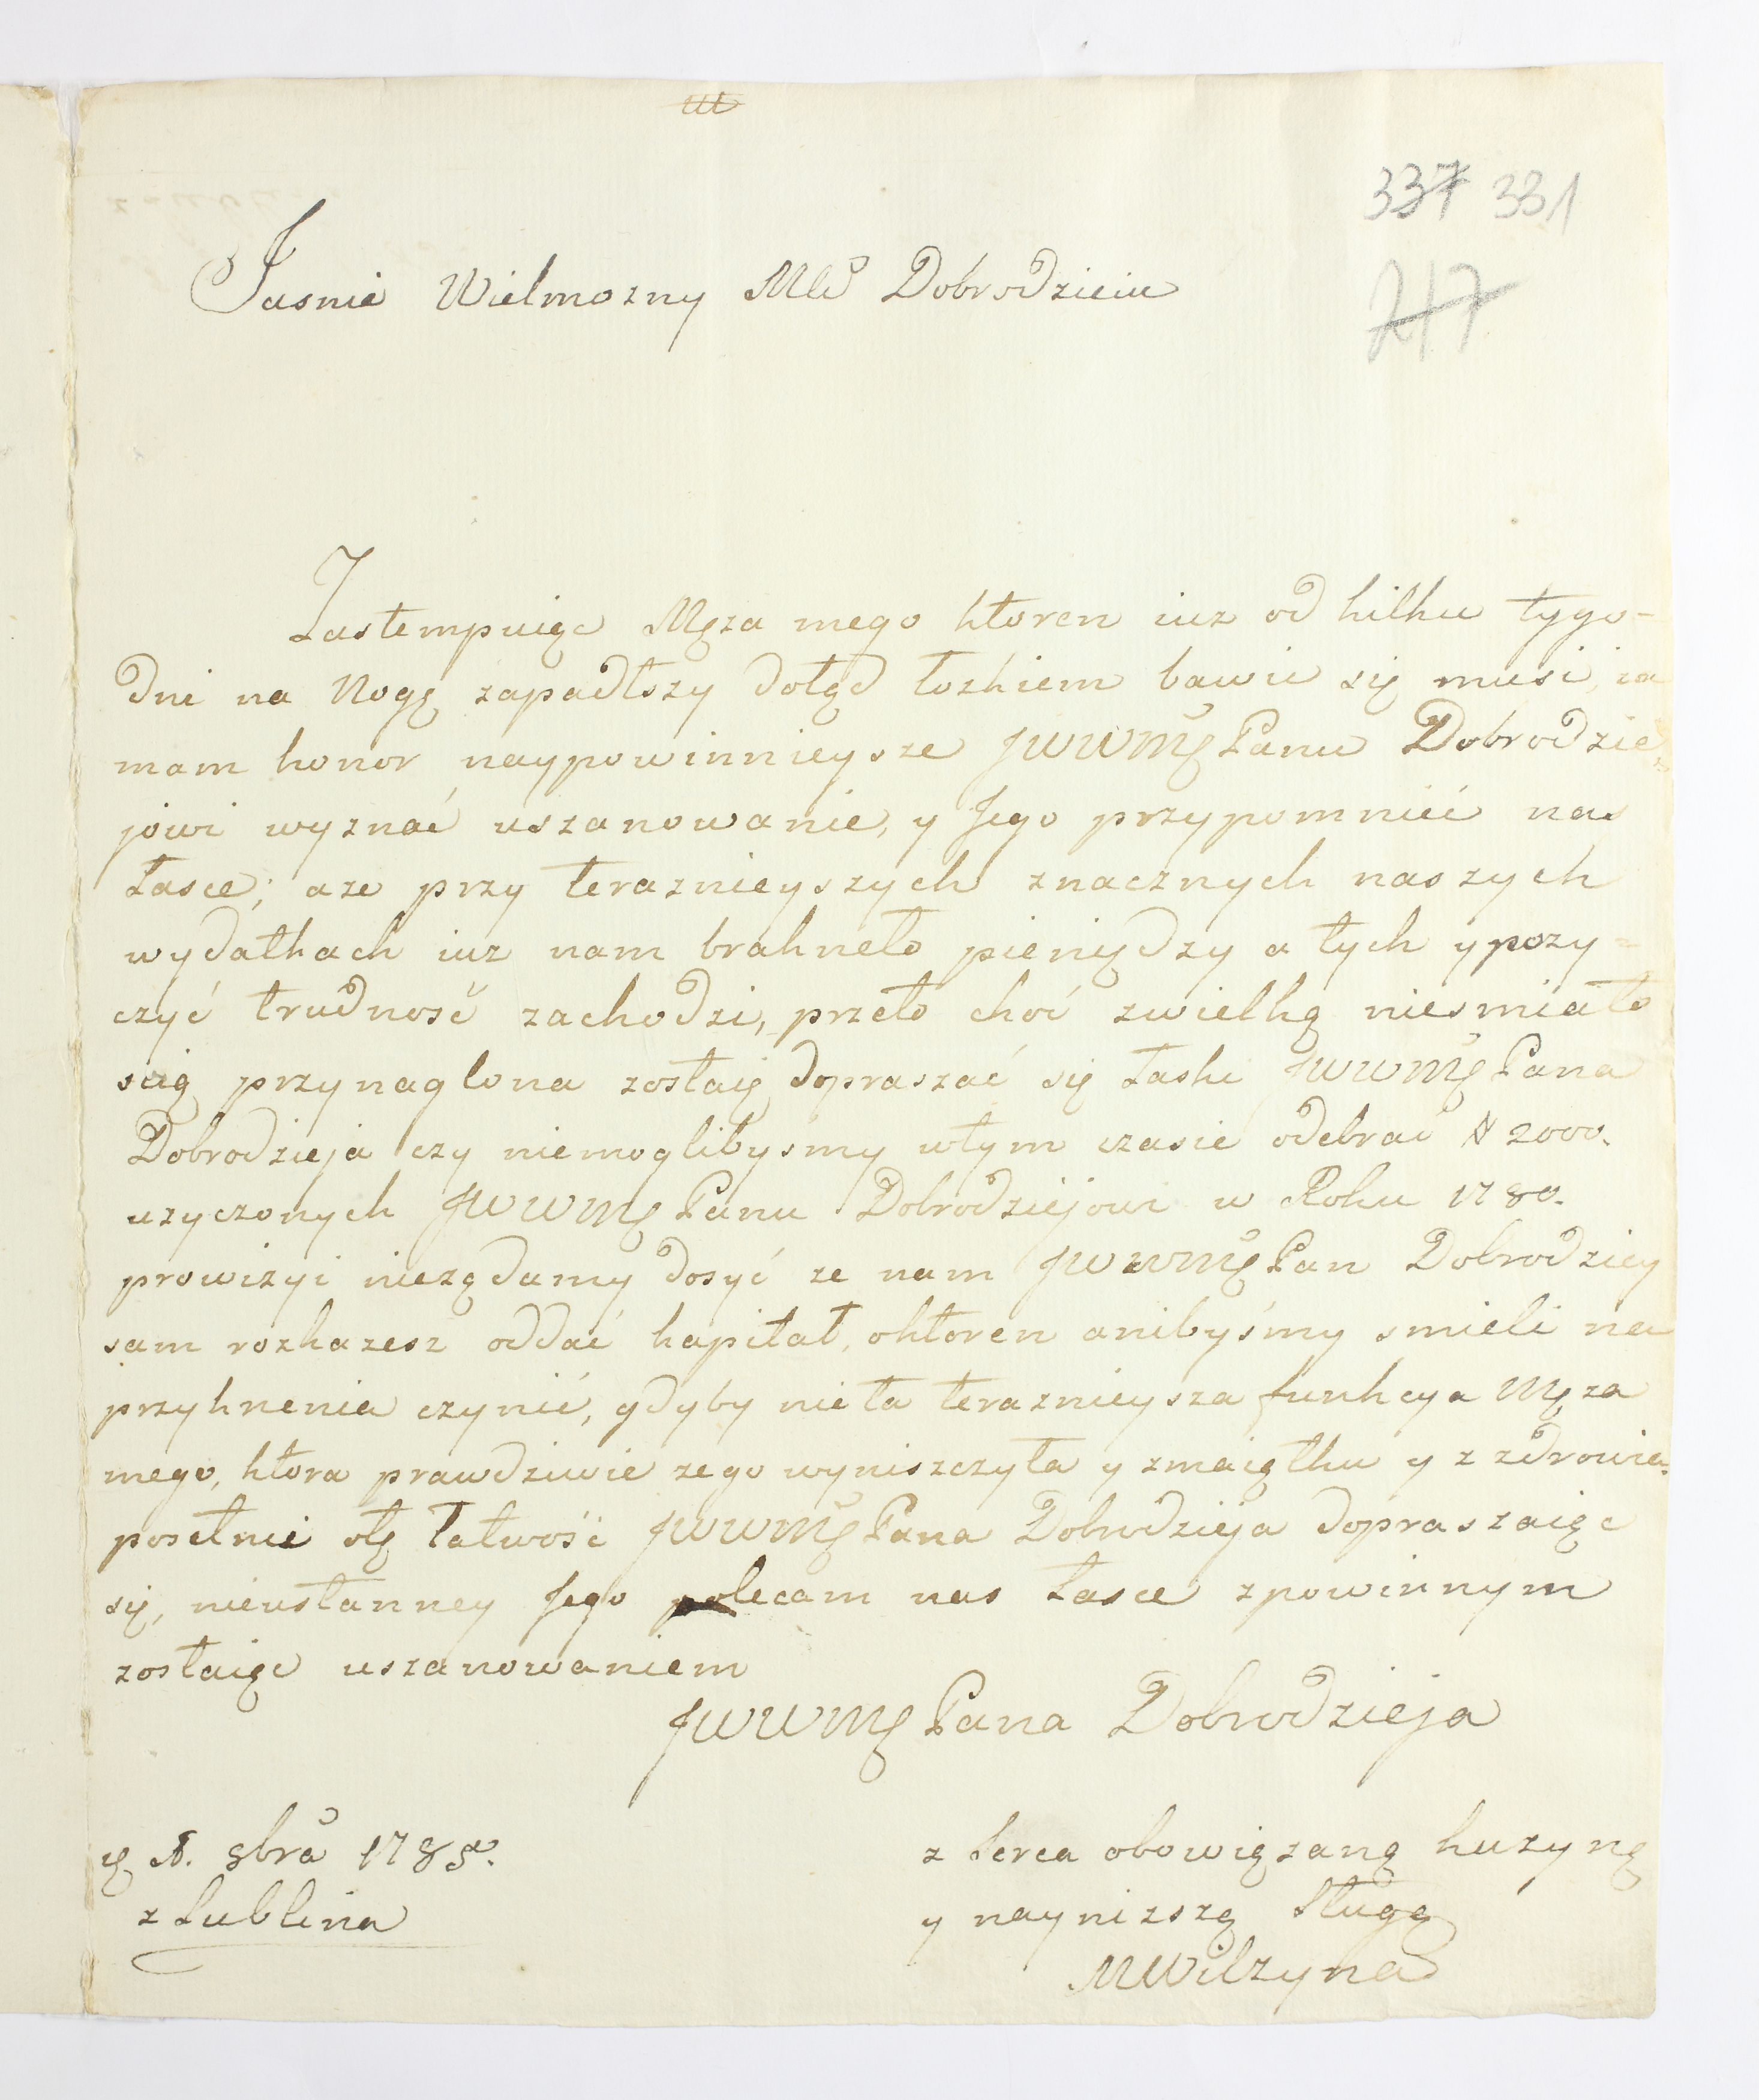 337 331
217
Jasnie Wielmozny Mci Dobrodzieiu
Zastempuiąc Męza mego ktoren iuz od kilku tygo-
dni na Nogę zapadłszy dotąd łozkiem bawic się musi, ia
mam honor naypowinnieysze JWWMę Panu Dobrodzie
jowi wyznać uszanowanie, y Jego przypomnić nas
Łasce; aze przy teraznieyszych znacznych naszych
wydatkach iuz nam brakneło pieniędzy a tych y pozy=
czyć trudność zachodzi, przeto choć zwielką niesmiało
scią przynaglona zostaię dopraszać się Łaski JWWMę Pana
Dobrodzieja czy niemoglibysmy wtym czasie odebrać # 2000.
uzyczonych JWWMę Panu Dobrodziejowi w Roku 1780.
prowizyi nieządamy dosyć ze nam JWWMę Pan Dobrodziey
sam rozkazesz oddać kapitał, oktoren anibyśmy smieli na
przyknenia czynić, gdyby nie ta teraznieysza funkcya Męza
mego, ktora prawdziwie zego wyniszczyła y zmaiątku y z zdrowia.
posetnie otę Łatwość JWWMę Pana Dobrodzieja dopraszaiąc
się, nieustanney Jego polecam nas Łasce zpowinnym
zostaiąc uszanowaniem
JWWMę Pana Dobrodzieja
8bra 1785.
z Lublina
z Serca obowiązaną kuzyną
y naynizszą Sługą
MWilzyna